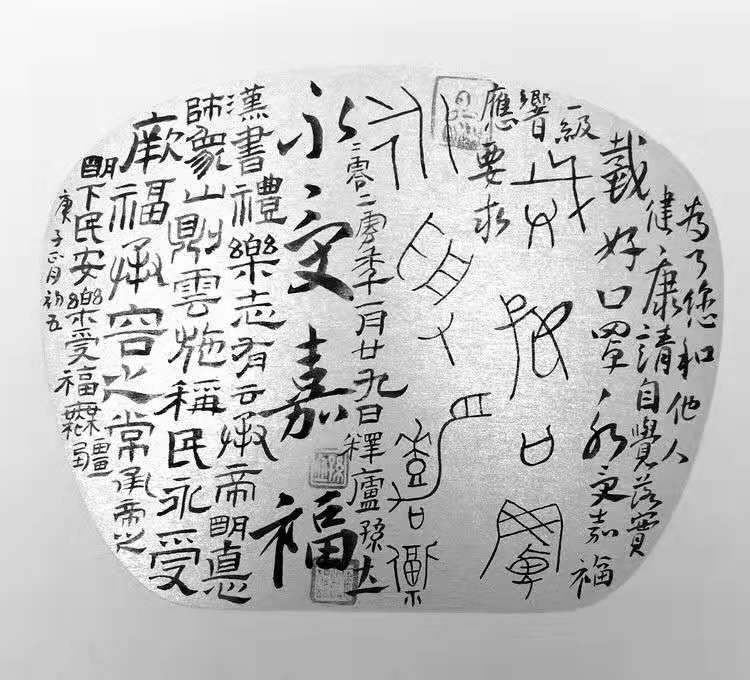 為了您和他人
健康請自覺落實
戴好口罩、永受嘉福
一級
響
應要求
戴好口罩
永受嘉福
二零二零年一月廿九日釋廬
永受嘉福
漢書禮樂志有云承帝明悳
師象山則雲施稱民永受
厥福承容之常承帝之
明下民安樂受福無疆
庚子正月初五